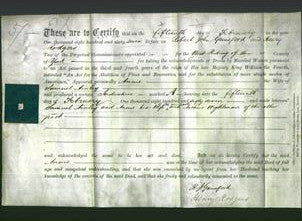 These are to Certify that on the fifteenth day of February in the year
One thousand eight hundred and sixty seven before us Robert and Henry
Rodgers
Two of the Perpetual Commissioners appointed for the West Riding of the
County of York for taking the acknowledgments of Deeds by Married Women pursuant
to an Act passed in the third and fourth years of the reign of His late Majesty King William the Fourth,
intituled "An Act for the Abolition of Fines and Recoveries, and for the substitution of more simple modes of
Assurance," appeared personally Annie the wife of
Samuel
and produced a certain Indenture marked A bearing date the fifteenth
day of February One thousand eight hundred and sixty seven and made between
Samuel and Annie his Wife of the one part and of the other
part
and acknowledged the same to be her act and deed. And we do hereby Certify that the said
Annie was at the time of her acknowledging the said Deed of full
age and competent understanding, and that she was examined by us apart from her Husband touching her
knowledge of the contents of the said Deed, and that she freely and voluntarily consented to the same.
Henry Rodgers